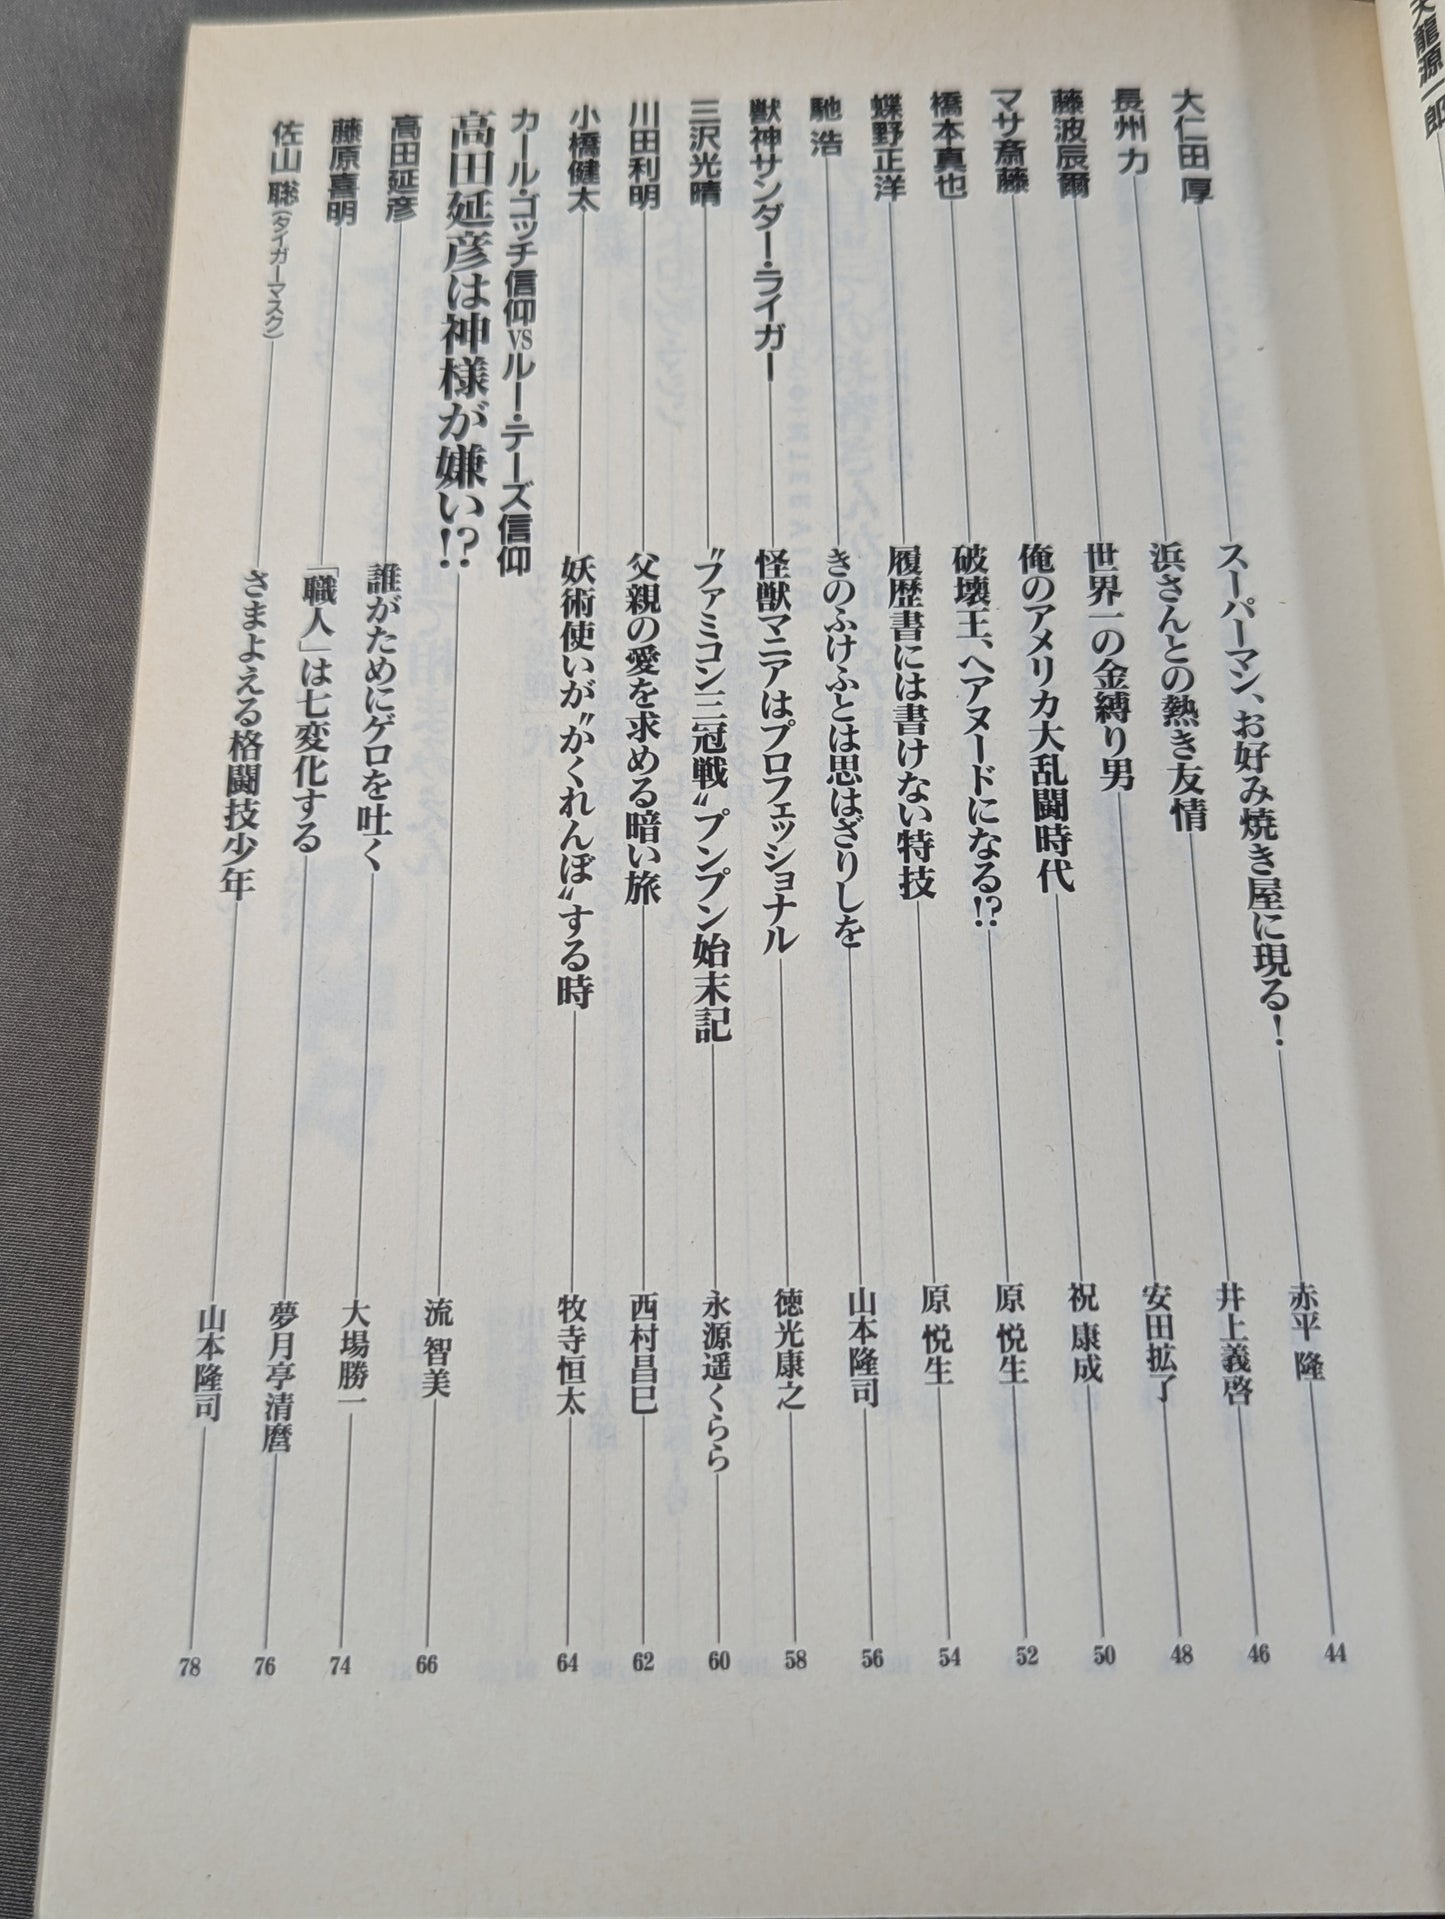 天龍源一郎
大仁田 厚 スーパーマン、お好み焼き屋に現る! 赤平 隆 44
長州 力 浜さんとの熱き友情 井上義啓 46
藤波辰爾 世界一の金縛り男 安田拡了 48
マサ斎藤 俺のアメリカ大乱闘時代 祝 康成 50
橋本真也 破壊王、ヘアヌードになる!? 原 悦生 52
蝶野正洋 履歴書には書けない特技 原 悦生 54
馳 浩 きのふけふとは思はざりしを 山本隆司 56
獣神サンダー・ライガー 怪獣マニアはプロフェッショナル 徳光康之 58
三沢光晴 〝ファミコン三冠戦〟プンプン始末記 永源遥くらら 60
川田利明 父親の愛を求める暗い旅 西村昌巳 62
小橋健太 妖術使いが〝かくれんぼ〟する時 牧寺恒太 64
カール・ゴッチ信仰VSルー・テーズ信仰
高田延彦は神様が嫌い!? 流 智美 66
高田延彦 誰がためにゲロを吐く 大場勝一 74
藤原喜明 「職人」は七変化する 夢月亭清麿 76
佐山 聡(タイガーマスク) さまよえる格闘技少年 山本隆司 78